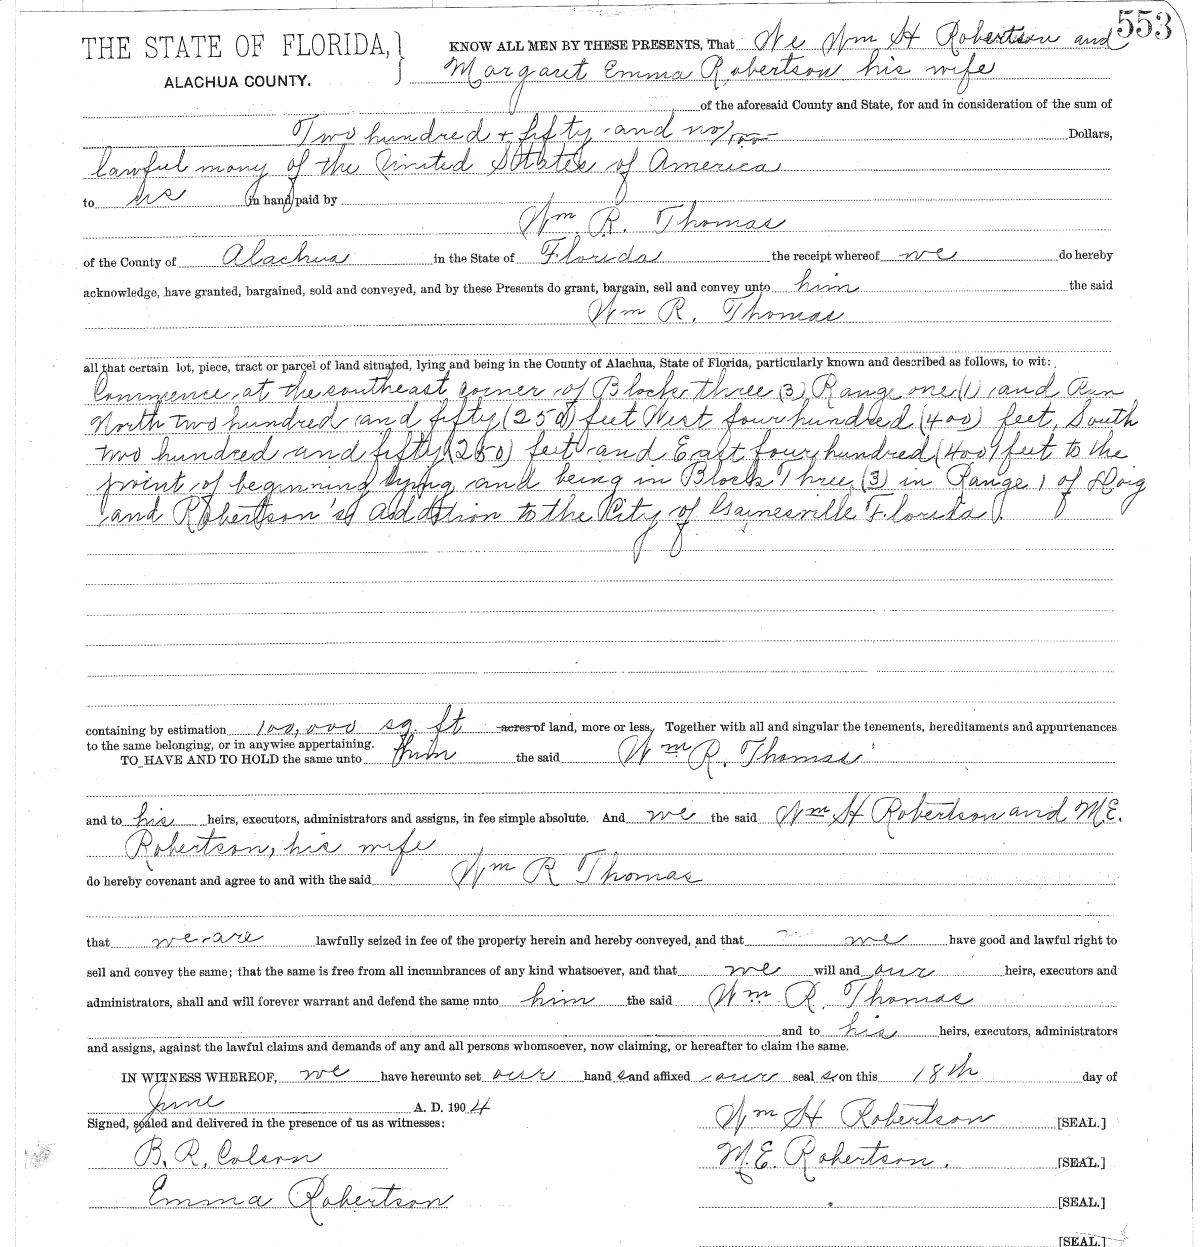 553
THE STATE OF FLORIDA,
ALACHUA COUNTY.
KNOW ALL MEN BY THESE PRESENTS, That We Wm H Robertson and
Margaret Emma Robertson his wife
of the aforesaid County and State, for and in consideration of the sum of
Two hundred & fifty and no/100 Dollars,
lawful mony of the United States of America
to us in hand paid by
Wm. R. Thomas
of the County of Alachua in the State of Florida the receipt whereof we do hereby
acknowledge, have granted, bargained, sold and conveyed, and by these Presents do grant, bargain, sell and convey unto him the said
Wm R. Thomas
all that certain lot, piece, tract or parcel of land situated, lying and being in the County of Alachua, State of Florida, particularly known and described as follows, to wit:
Commence at the southeast corner of Block three (3) Range one (1) and Run
North two hundred and fifty (250) feet West four hundred (400) feet, South
two hundred and fifty (250) feet and East four hundred (400) feet to the
point of beginning lying and being in Block Three (3) in Range 1 of Doig
and Robertson's Addition to the City of Gainesville Florida.
containing by estimation 100,000 sq. ft acres of land, more or less, Together with all and singular the tenements, hereditaments and appurtenances
to the same belonging, or in anywise appertaining.
TO HAVE AND TO HOLD the same unto him the said Wm R. Thomas
and to his heirs, executors, administrators and assigns, in fee simple absolute. And we the said Wm H Robertson and M.E.
Robertson, his wife
do hereby covenant and agree to and with the said Wm R Thomas
that we are lawfully seized in fee of the property herein and hereby conveyed, and that we have good and lawful right to
sell and convey the same; that the same is free from all incumbrances of any kind whatsoever, and that we will and our heirs, executors and
administrators, shall and will forever warrant and defend the same unto him the said Wm. R. Thomas
and to his heirs, executors, administrators
and assigns, against the lawful claims and demands of any and all persons whomsoever, now claiming, or hereafter to claim the same.
IN WITNESS WHEREOF, we have hereunto set our hand s and affixed our seal s on this 18th day of
June A. D. 1904
Signed, sealed and delivered in the presence of us as witnesses:
Wm H Robertson [SEAL.]
B. R. Colson
M.E. Robertson. [SEAL.]
Emma Robertson
[SEAL.]
[SEAL.]